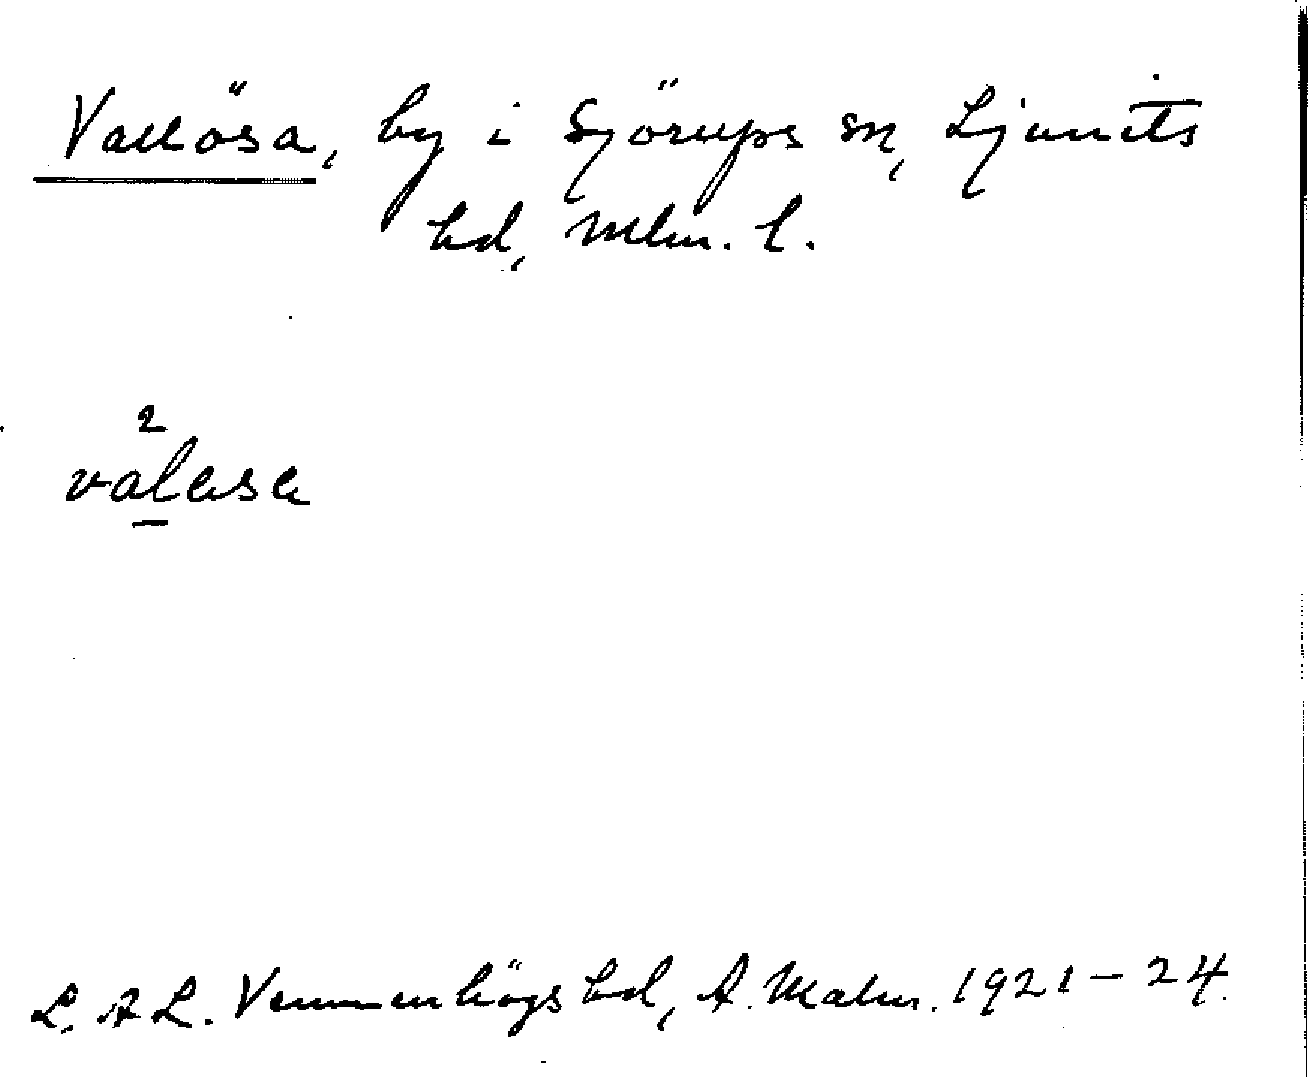 Vallösa, by i Sjörups sn, Ljunits
hd, Mlm. l.
2
valasa
L. A L. Vemmenhögs hd, A. Malm. 1921–24.